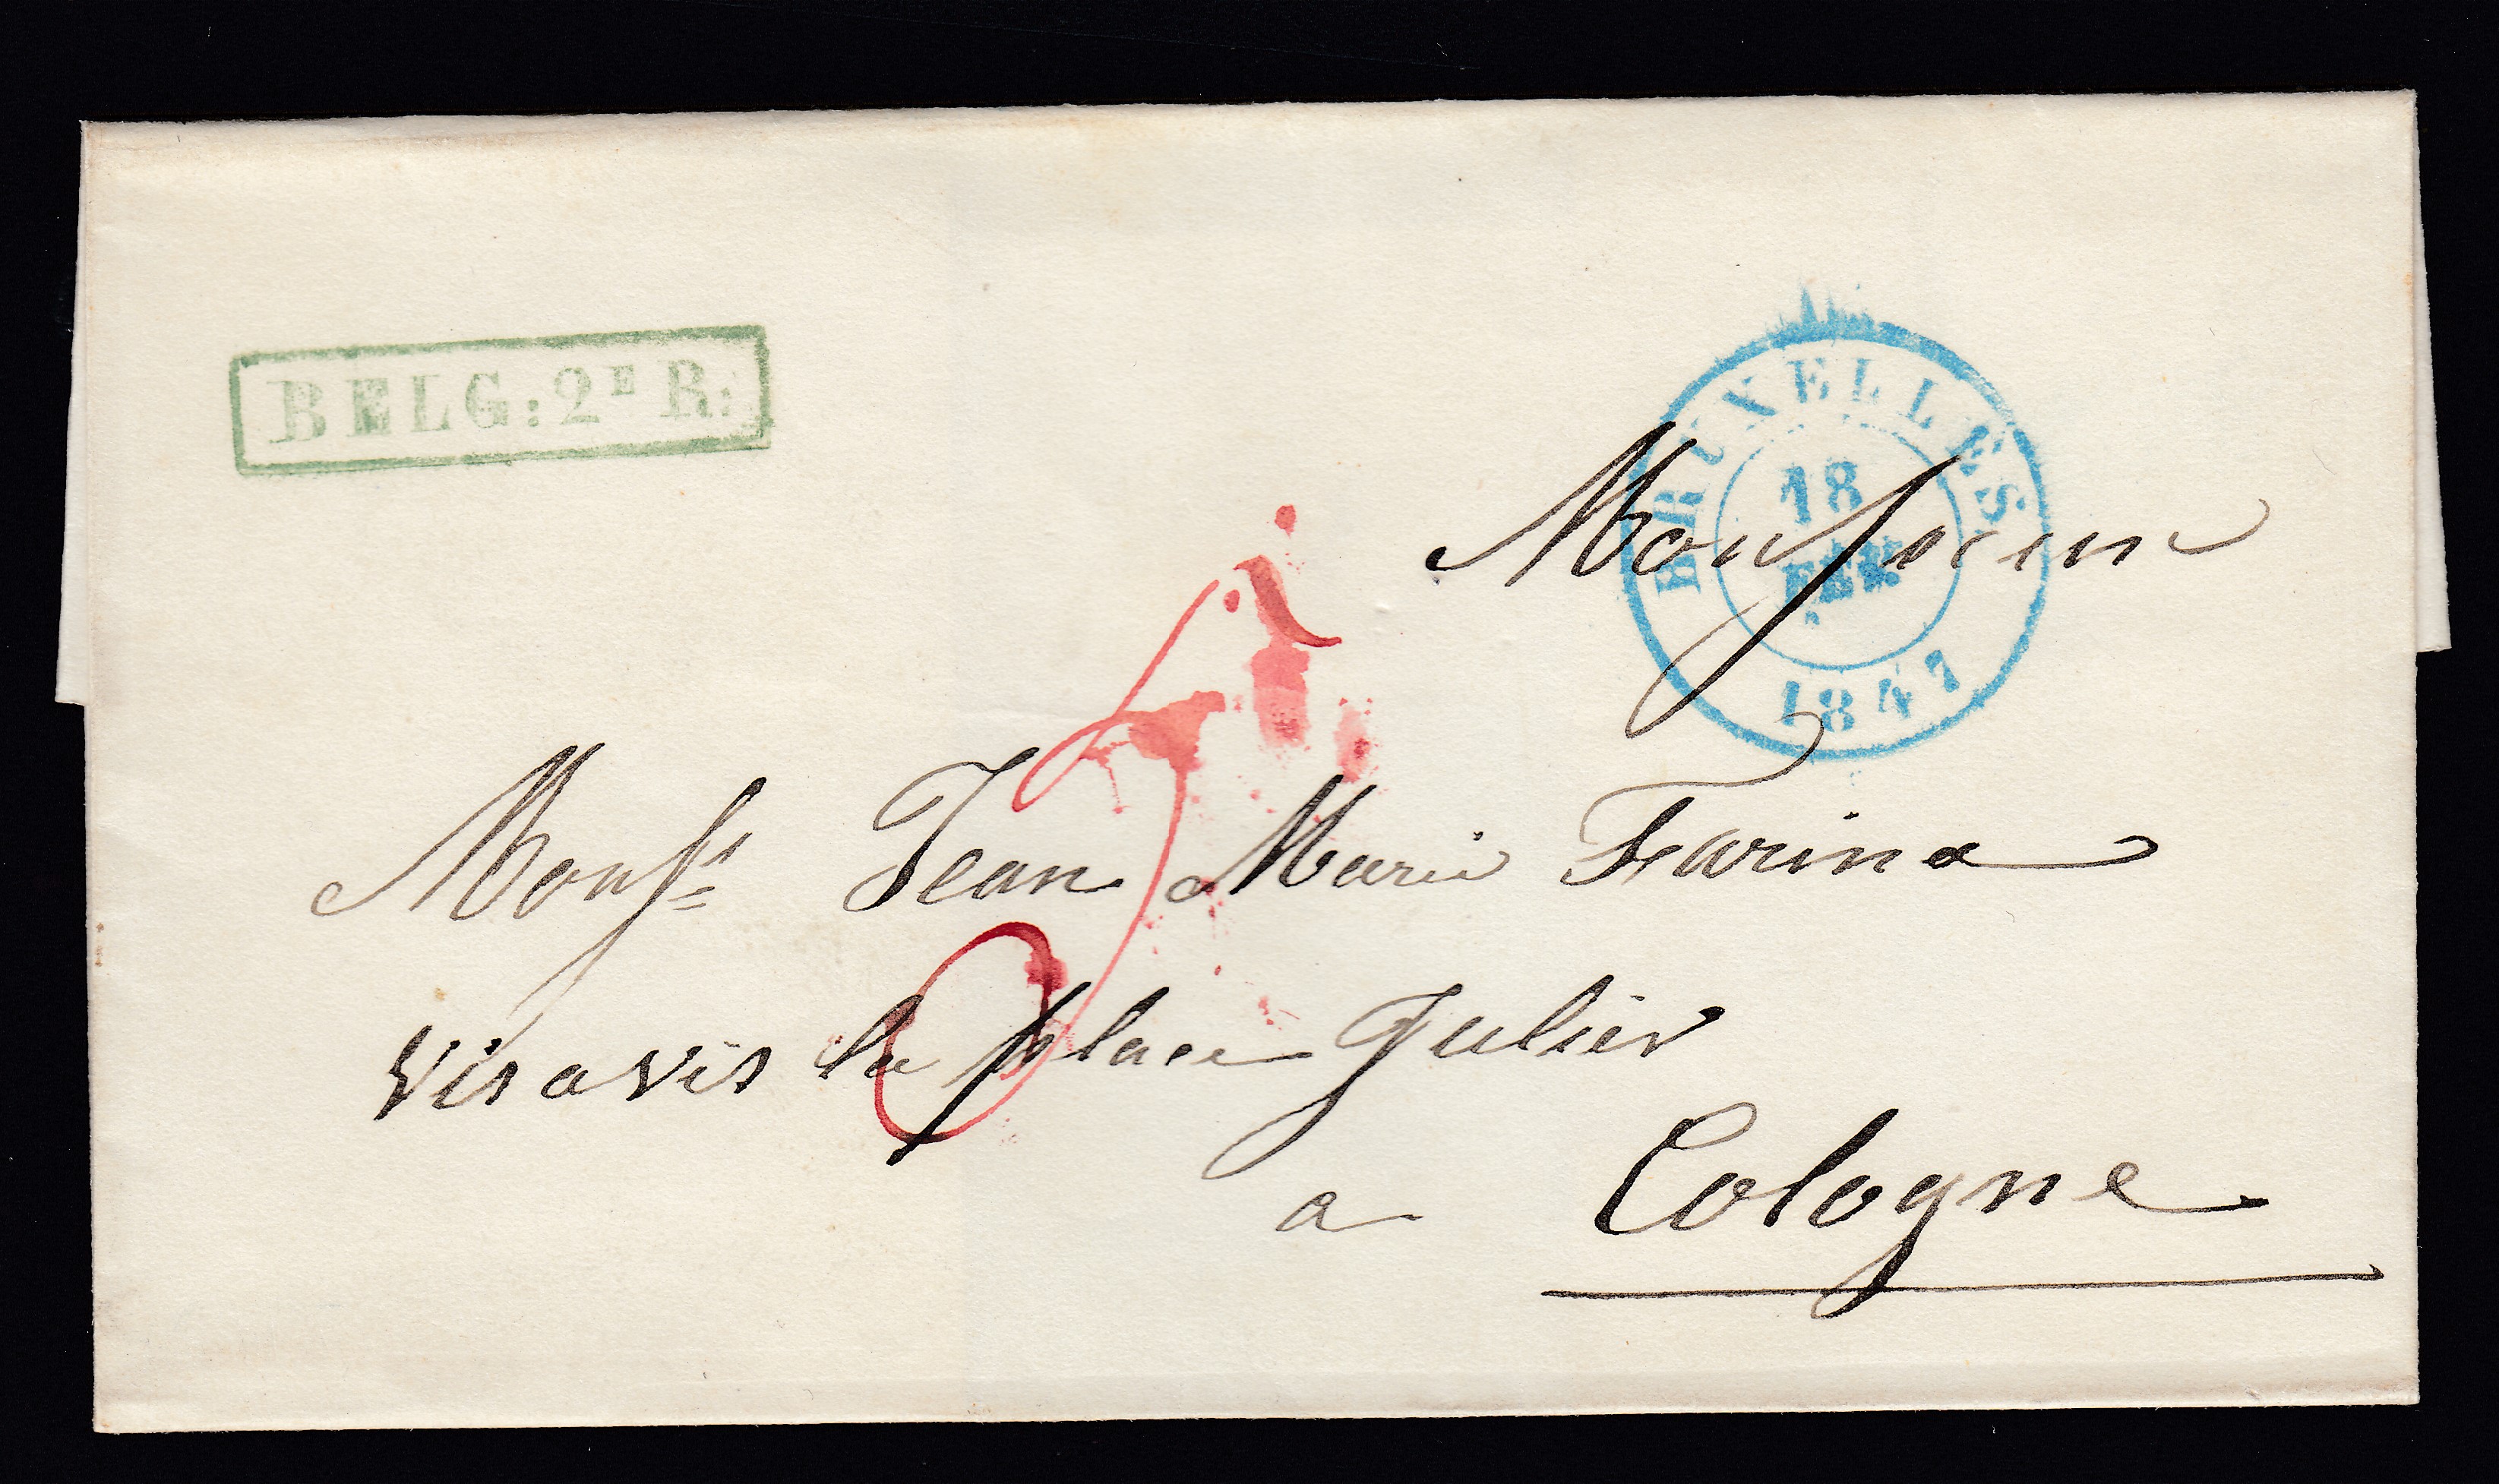 BELG: 2E R:
BRUXELLES
18
FEV.
1847
Monsieur
Monsr Jean Marie Farina
vis a vis la place Julier
a Cologne